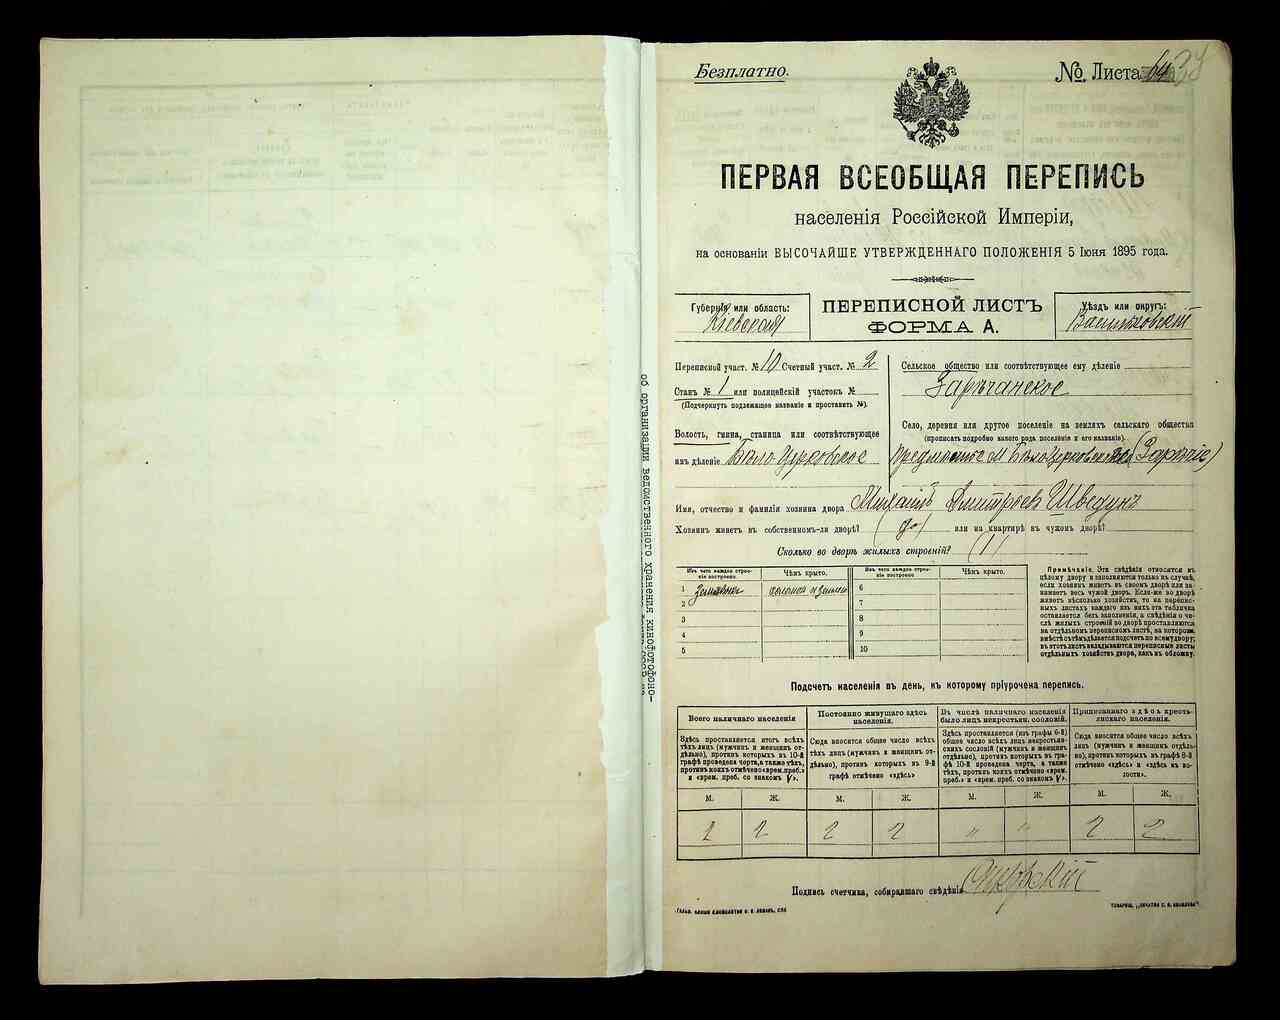 Безплатно.
№. Листа
ПЕРВАЯ ВСЕОБЩАЯ ПЕРЕПИСЬ
населенія Россійской Имперіи,
на основаніи ВЫСОЧАЙШЕ УТВЕРЖДЕННАГО ПОЛОЖЕНІЯ 5 Іюня 1895 года.
Губернія или область:
Кіевская
ПЕРЕПИСНОЙ ЛИСТЪ
ФОРМА А.
Уѣздъ или округъ:
Васильковскій
Переписной участ. № 10 Счетный участ. № 2
Станъ № 1 или полицейскій участокъ №
(Подчеркнуть подлежащее названіе и проставить №).
Волость, гмина, станица или соотвѣтствующее
имъ дѣленіе Бѣло-Церковское
Сельское общество или соотвѣтствующее ему дѣленіе
Зарѣчанское
Село, деревня или другое поселеніе на земляхъ сельскаго общества
(прописать подробно какого рода поселеніе и его названіе).
Предмѣстье м. Бѣлоцерковское (Зарѣчіе)
Имя, отчество и фамилія хозяина двора Михаилъ Дмитріевъ Шведунъ
Хозяинъ живетъ въ собственномъ-ли дворѣ? (да) или на квартирѣ въ чужомъ дворѣ?
Сколько во дворѣ жилыхъ строеній? (1)
Изъ чего каждое строеніе построено.
Чѣмъ крыто.
Изъ чего каждое строеніе построено.
Чѣмъ крыто.
1 Землянка соломой и землей
2
3
4
5
6
7
8
9
10
Примѣчаніе. Эти свѣдѣнія относятся къ
цѣлому двору и заполняются только въ случаѣ,
если хозяинъ живетъ въ своемъ дворѣ или занимаетъ
весь чужой дворъ. Если-же во дворѣ
живетъ нѣсколько хозяйствъ, то на переписныхъ
листахъ каждаго изъ нихъ эта табличка
оставляется безъ заполненія, а свѣдѣнія о числѣ
жилыхъ строеній во дворѣ проставляются
на отдѣльномъ переписномъ листѣ, на которомъ
вмѣстѣ съ тѣмъ дѣлается подсчетъ по всему двору;
въ этотъ листъ вкладываются переписные листы
отдѣльныхъ хозяйствъ двора, какъ въ обложку.
Подсчетъ населенія въ день, къ которому пріурочена перепись.
Всего наличнаго населенія
Здѣсь проставляется итогъ всѣхъ
тѣхъ лицъ (мужчинъ и женщинъ отдѣльно),
противъ которыхъ въ 10-й
графѣ проведена черта, а также тѣхъ,
противъ коихъ отмѣчено «врем. преб.»
и «врем. преб. со знакомъ V».
Постоянно живущаго здѣсь
населенія.
Сюда вносится общее число всѣхъ
тѣхъ лицъ (мужчинъ и женщинъ отдѣльно),
противъ которыхъ въ 9-й
графѣ отмѣчено «здѣсь»
Въ числѣ наличнаго населенія
было лицъ некрестьян. сословій.
Здѣсь проставляется (изъ графы 6-й)
общее число всѣхъ лицъ некрестьянскихъ
сословій (мужчинъ и женщинъ
отдѣльно), противъ которыхъ въ графѣ
10-й проведена черта, а также
тѣхъ, противъ коихъ отмѣчено «врем.
преб.» и «врем. преб. со знакомъ V».
Приписаннаго здѣсь крестьянскаго
населенія.
Сюда вносится общее число всѣхъ
лицъ (мужчинъ и женщинъ отдѣльно),
противъ которыхъ въ графѣ 8-й
отмѣчено «здѣсь» и «здѣсь въ волости».
М. Ж. М. Ж. М. Ж. М. Ж.
2 2 2 2 " " 2 2
Подпись счетчика, собиравшаго свѣдѣнія
об организации ведомственного хранения кинофотофоно-